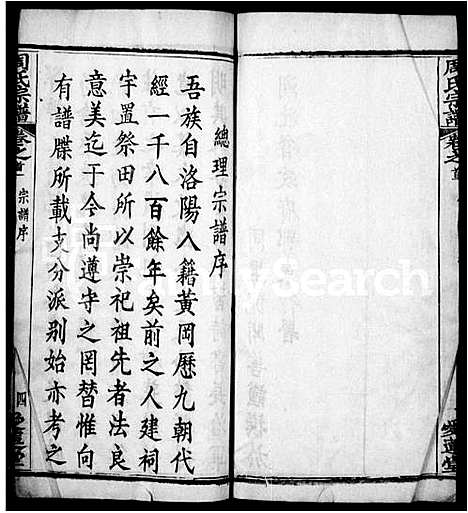 周氏宗譜
卷之首
愛蓮堂
總理宗譜序
吾族自洛陽入籍黃岡歷九朝代
經一千八百餘年矣前之人建祠
宇置祭田所以崇祀祖先者法良
意美迄于今尚遵守之罔替惟向
有譜牒所載支分派别始亦考之
周氏宗譜
卷之首
宗譜序
四
愛蓮堂
FamilySearch